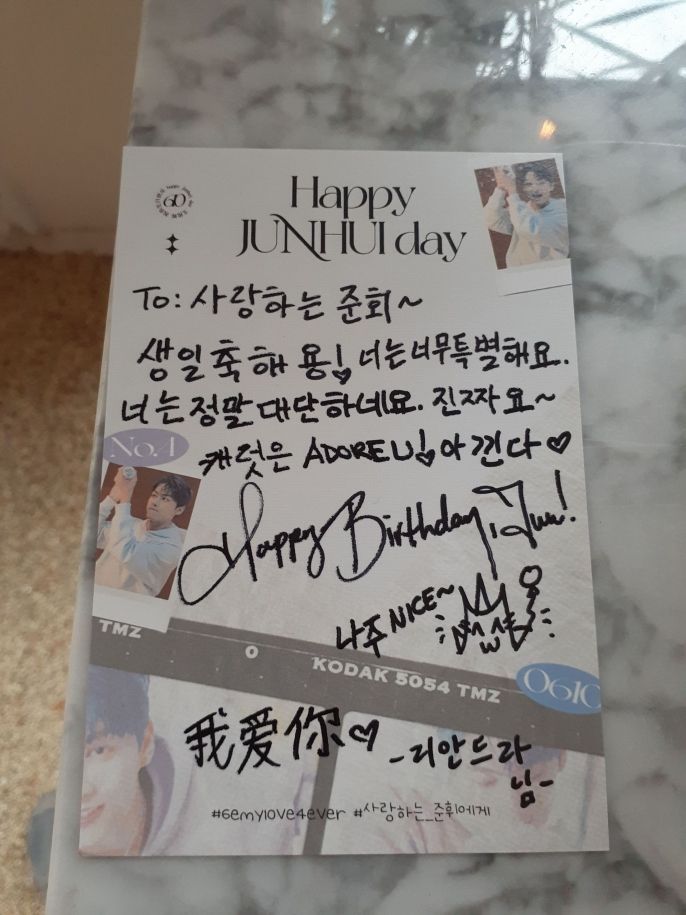 60
Happy
JUNHUI day
To: 사랑하는 준회~
생일축해용! 너는 너무특별해요.
너는정말대단하네요. 진짜요~
No.1
캐럿은 ADORE U! 아낀다♡
Happy Birthday, Jun!
나주 NICE~
TMZ
0
KODAK 5054 TMZ
0610
我爱你♡ -리안드라
님-
#Gemylove4ever #사랑하는_준휘에게